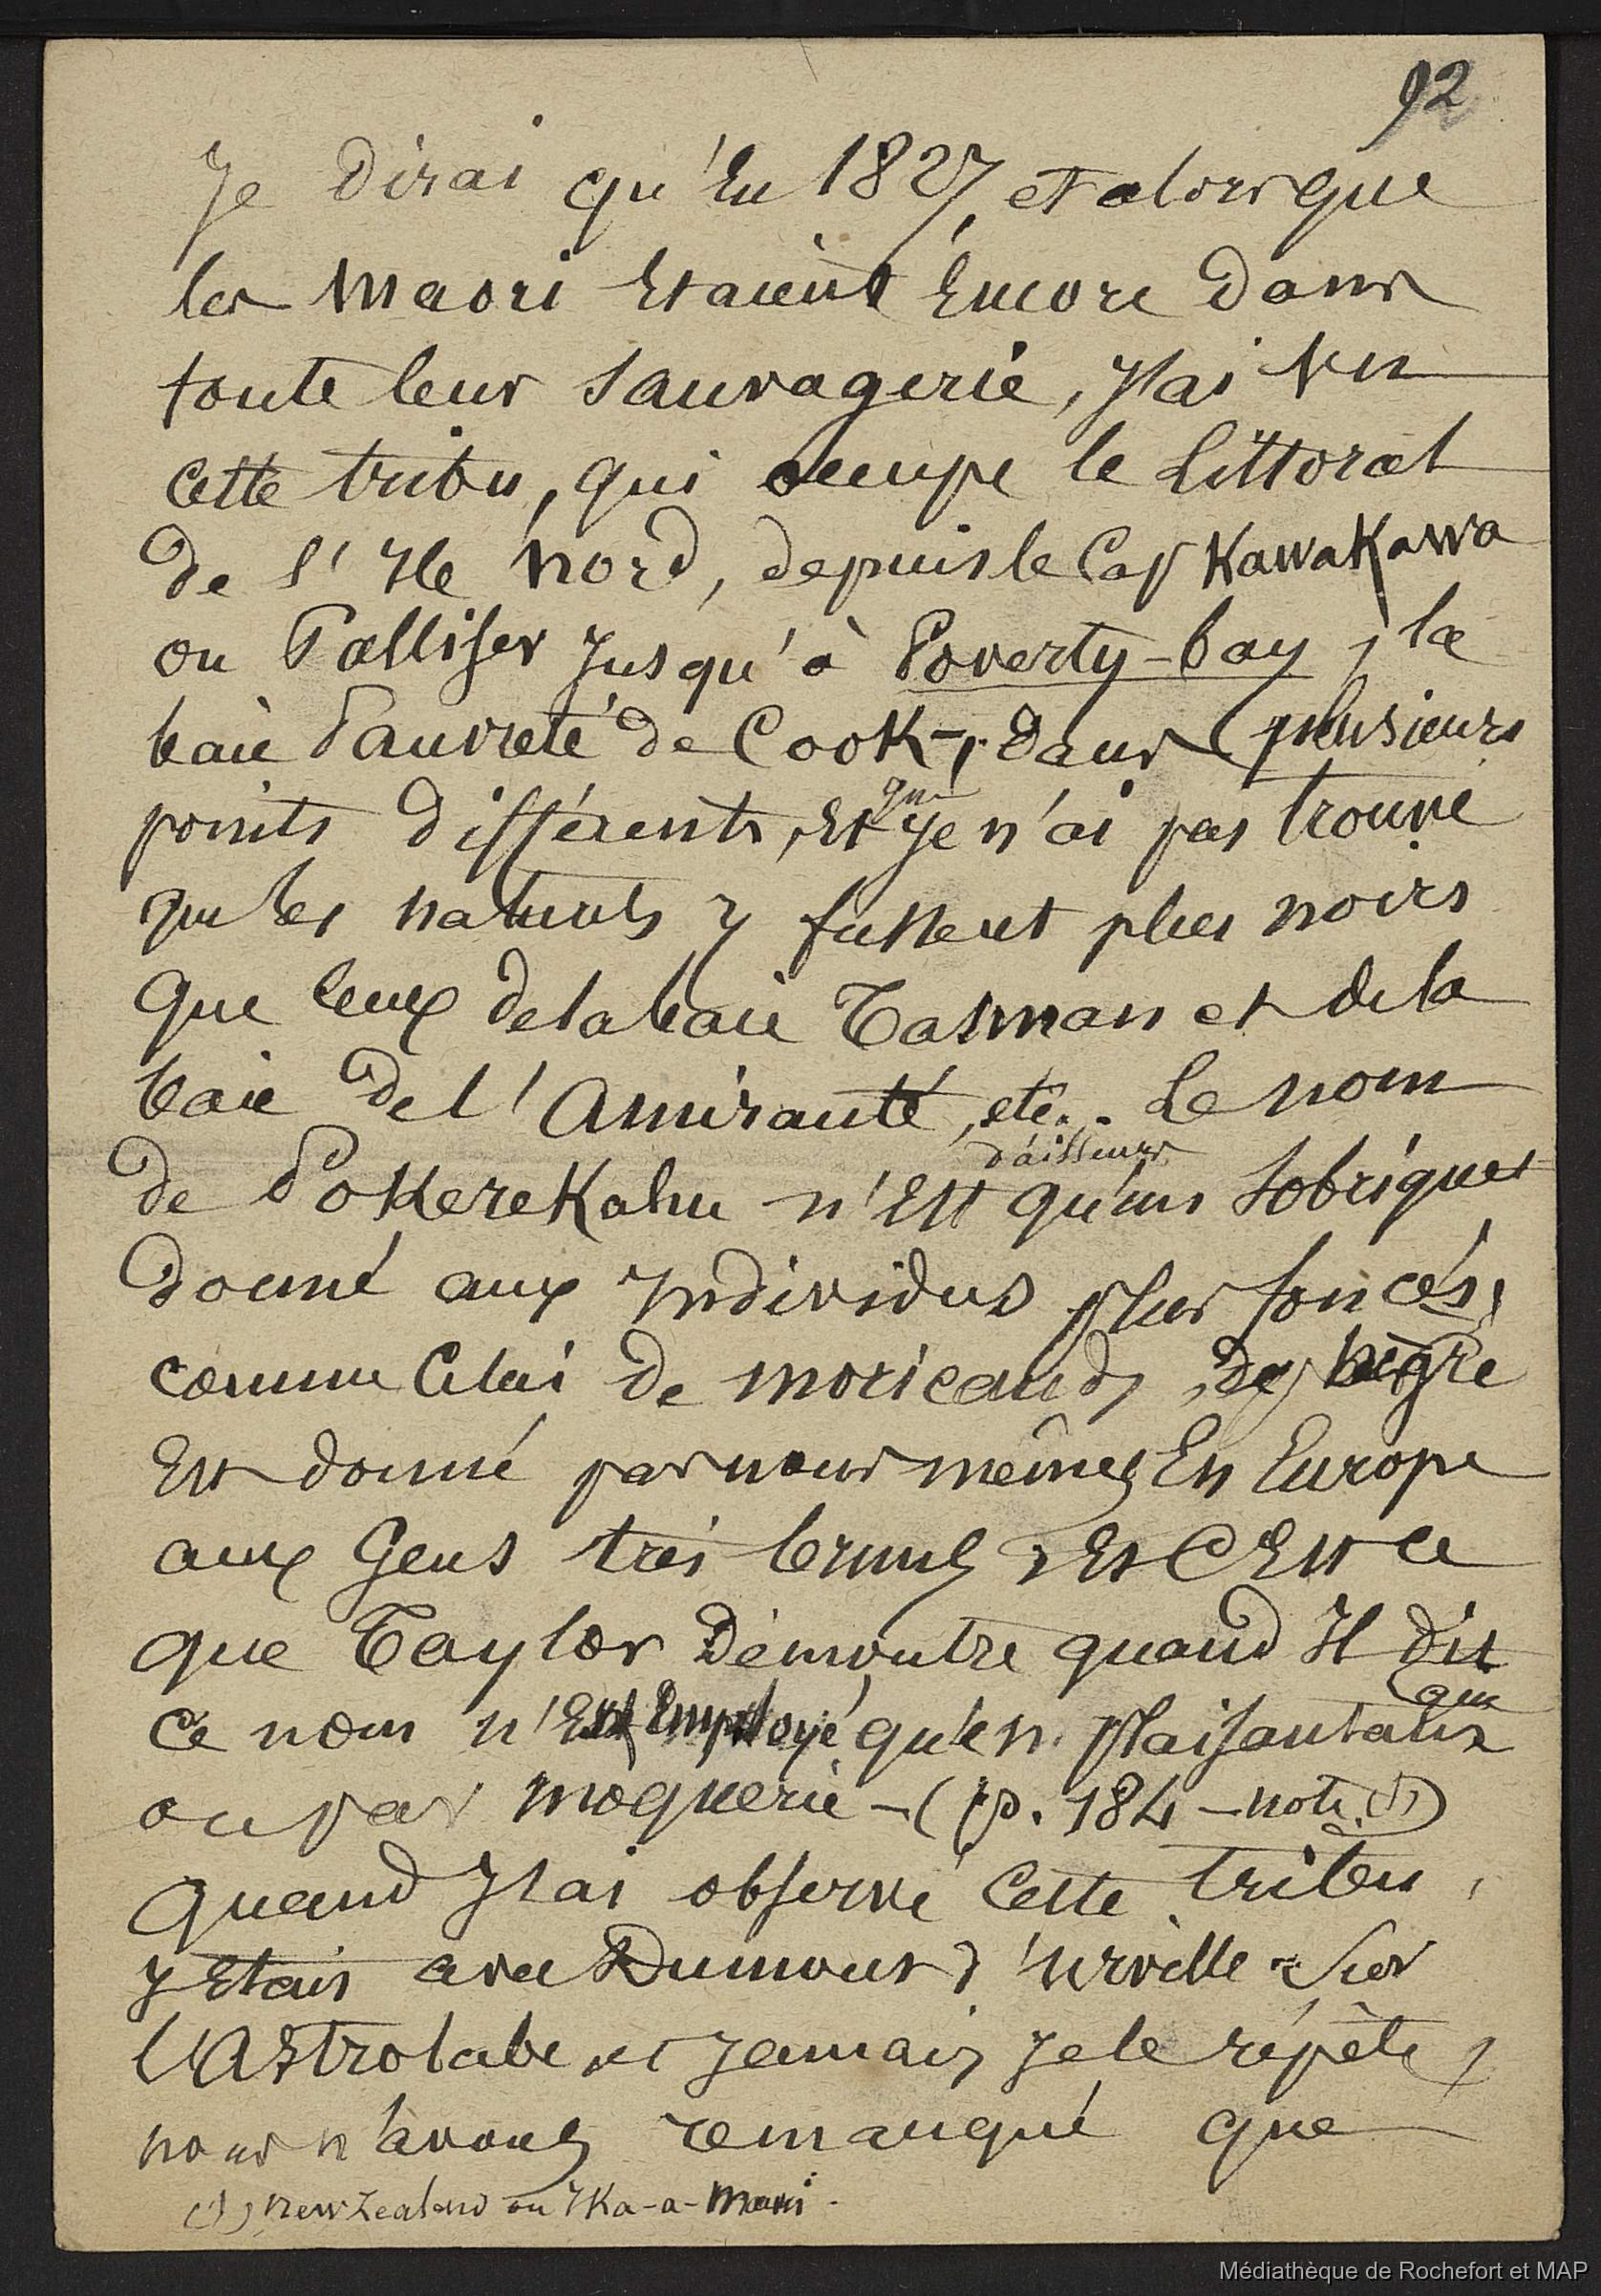 92
Je dirai qu'en 1827, et alors que
les Maori étaient encore dans
toute leur sauvagerie, j'ai vu
cette tribu, qui occupe le littoral
de l'Ile Nord, depuis le Cap Kawakawa
ou Palliser jusqu'à Poverty-bay, la
baie Pauvreté de Cook -, dans plusieurs
points différents, et que je n'ai pas trouvé
que les naturels y fussent plus noirs
que ceux de la baie Tasman et de la
baie de l'Amirauté, etc.. Le nom
d'ailleurs
de Pokerekahu n'est qu'un sobriquet
donné aux individus plus foncés,
comme celui de moricaud, de nègre
est donné par nous mêmes en Europe
aux gens très bruns, et c'est ce
que Taylor démontre quand il dit que
ce nom n'est employé qu'en plaisantant
ou par moquerie - (p. 184 - note (1))
Quand j'ai observé cette tribu,
j'étais avec Dumont d'Urville sur
l'Astrolabe, et jamais, je le répète,
nous n'avons remarqué que
(1) New Zealand ou Ika-a-Maui.
Médiathèque de Rochefort et MAP